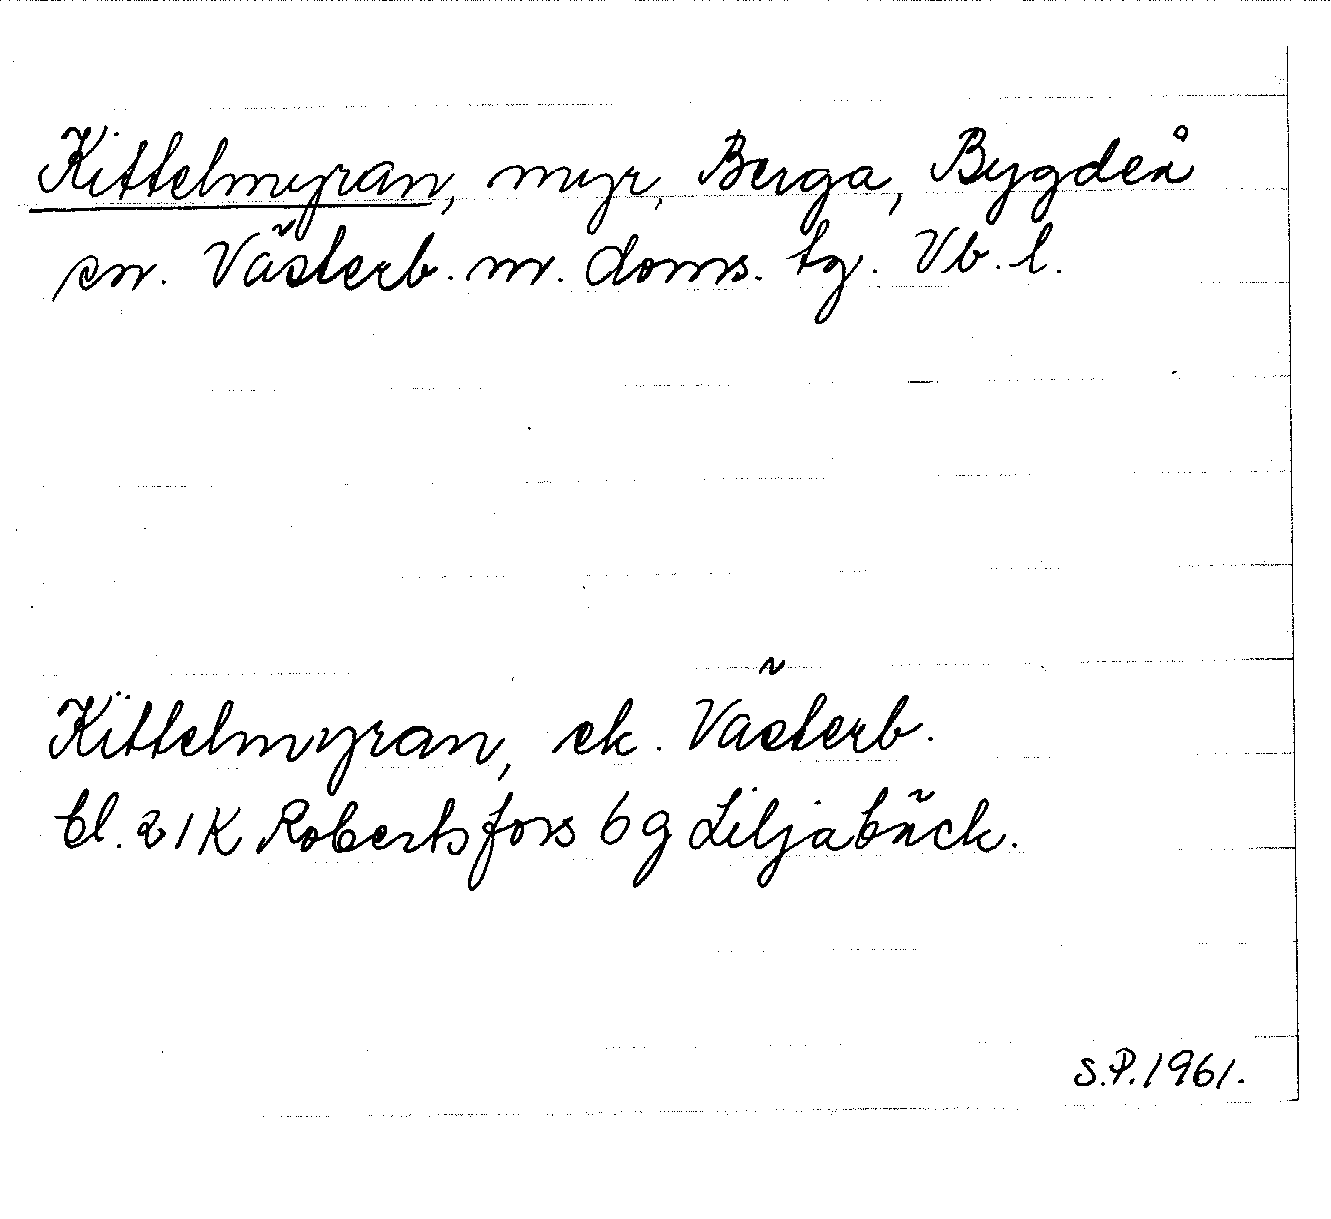 Kittelmyran, myr, Berga, Bygdeå
sn. Västerb. m. doms. tg. Vb. l.
Kittelmyran, ek. Västerb.
bl. 21K Robertsfors 6 g Liljabäck.
S.P. 1961.